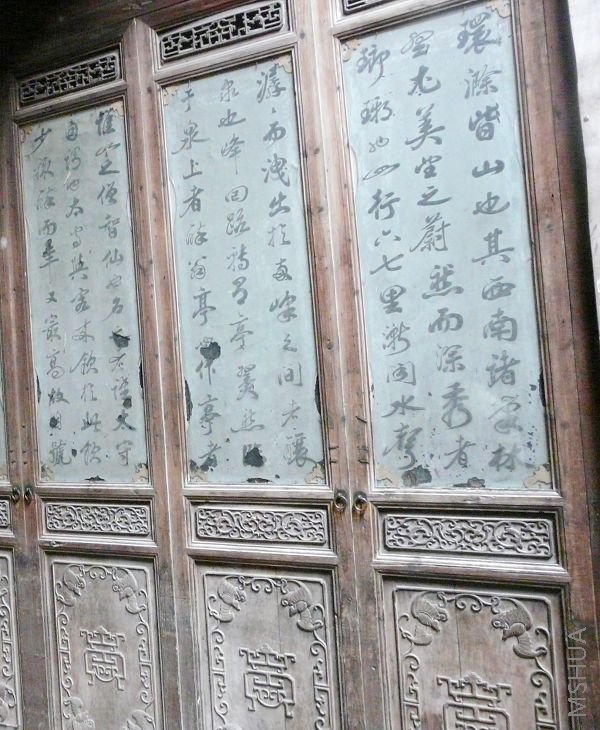 環滁皆山也其西南諸峯林
壑尤美望之蔚然而深秀者
瑯琊也山行六七里漸聞水聲
潺々而洩出於兩峰之間者釀
泉也峰回路轉有亭翼然
于泉上者醉翁亭作亭者
誰山之僧智仙也名之者誰太守
自謂也太守與客來飲於此飲
少輒醉而年又最高故自號
MSHUA